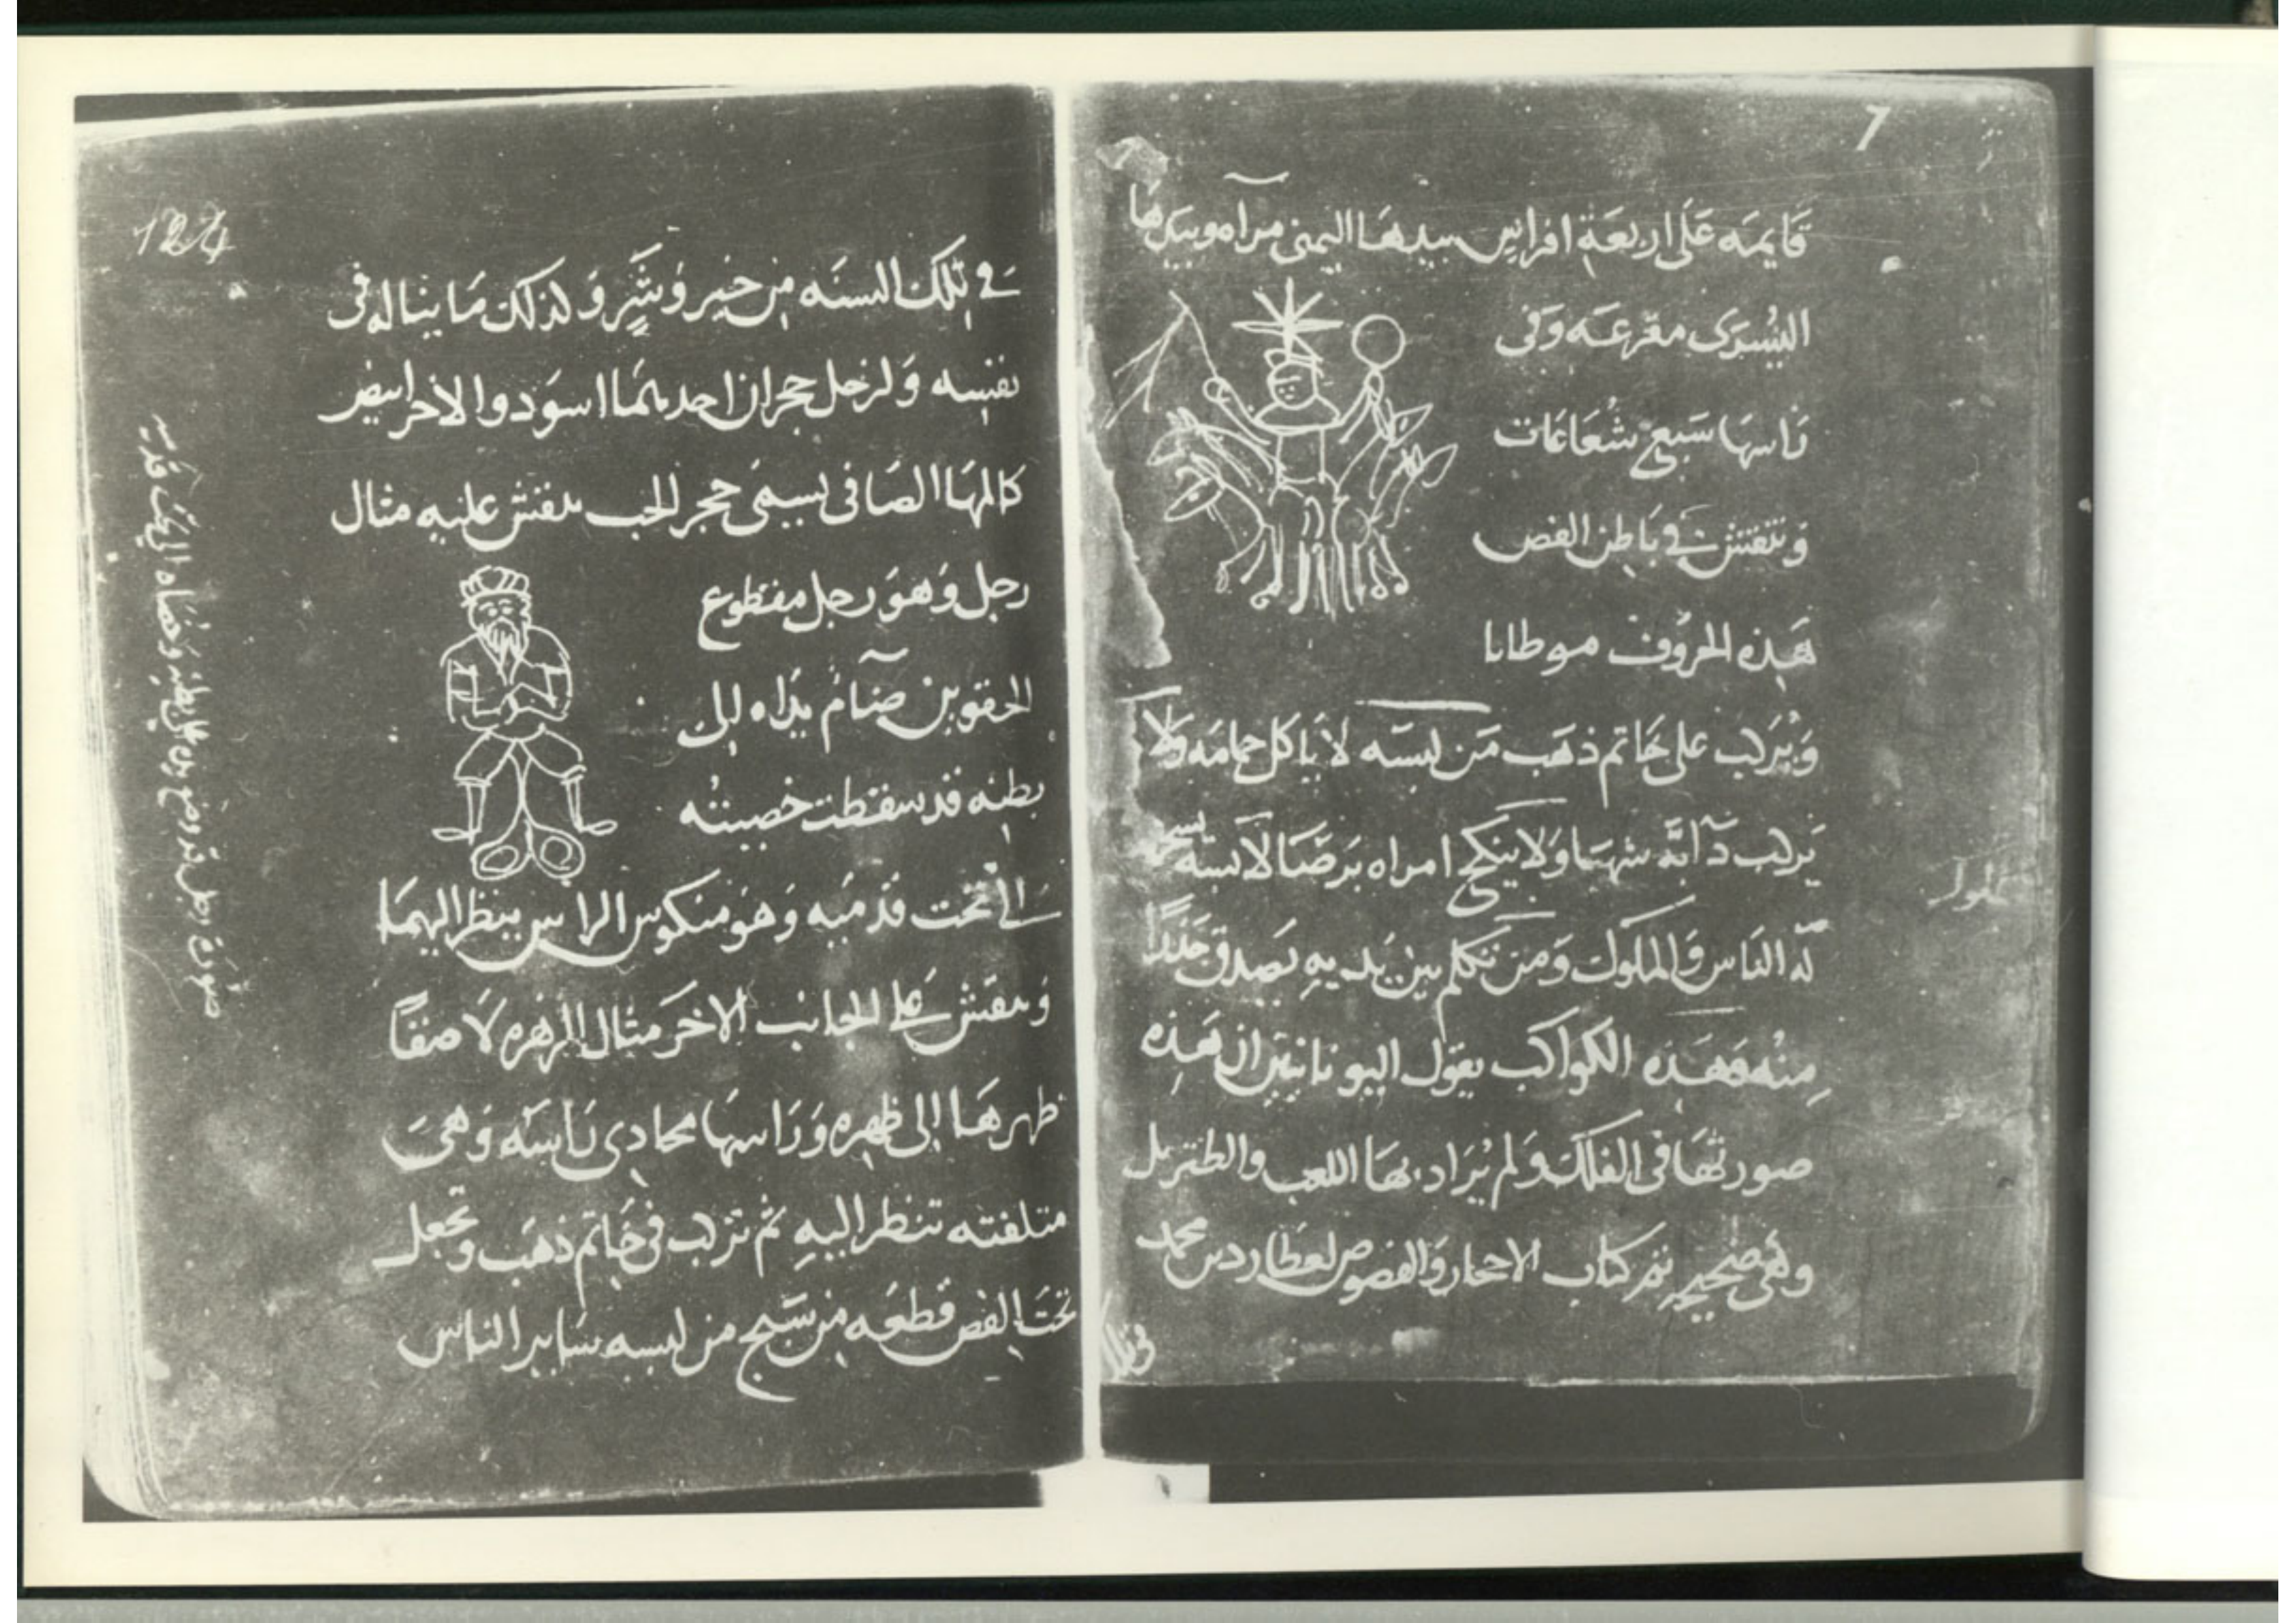 قايمه على اربعة افراس بيدها اليمنى مرآه وبيدها
اليسرى مقرعه وفى
راسها سبع شعاعات
وتنقش فے باطن الفص
هذه الحروف موطابا
ويركب على خاتم ذهب من لبسه لا ياكل حمامه ولا
يركب دآبة شهبا ولا ينكح امراه برصا لابسه
له الناس والملوك ومن تكلم بين يديه يصدق
منه فهذه الكواكب يقول اليونانيين ان هذه
صورتها فى الفلك ولم يراد بها اللعب والطنز بل
وهى صحيحه تم كتاب الاحجار والفصوص لعطارد بن محمد
فے تلك السنه من خير وشر وكذلك ما يناله فى
نفسه ولزحل حجران احدهما اسود والاخر ابيض
كالمها الصافى يسمى حجر الحب ينقش عليه مثال
رجل وهو رجل مقطوع
الحقوين ضام يداه الى
بطنه قد سقطت خصيته
الى تحت قدميه وهو منكوس الراس ينظر اليهما
وينقش على الجانب الاخر مثال الزهره لاصقا
ظهرها الى ظهره وراسها محادى راسه وهى
متلفته تنظر اليه ثم تركب فى خاتم ذهب وتجعل
تحت الفص قطعه من سبج من لبسه ساير الناس